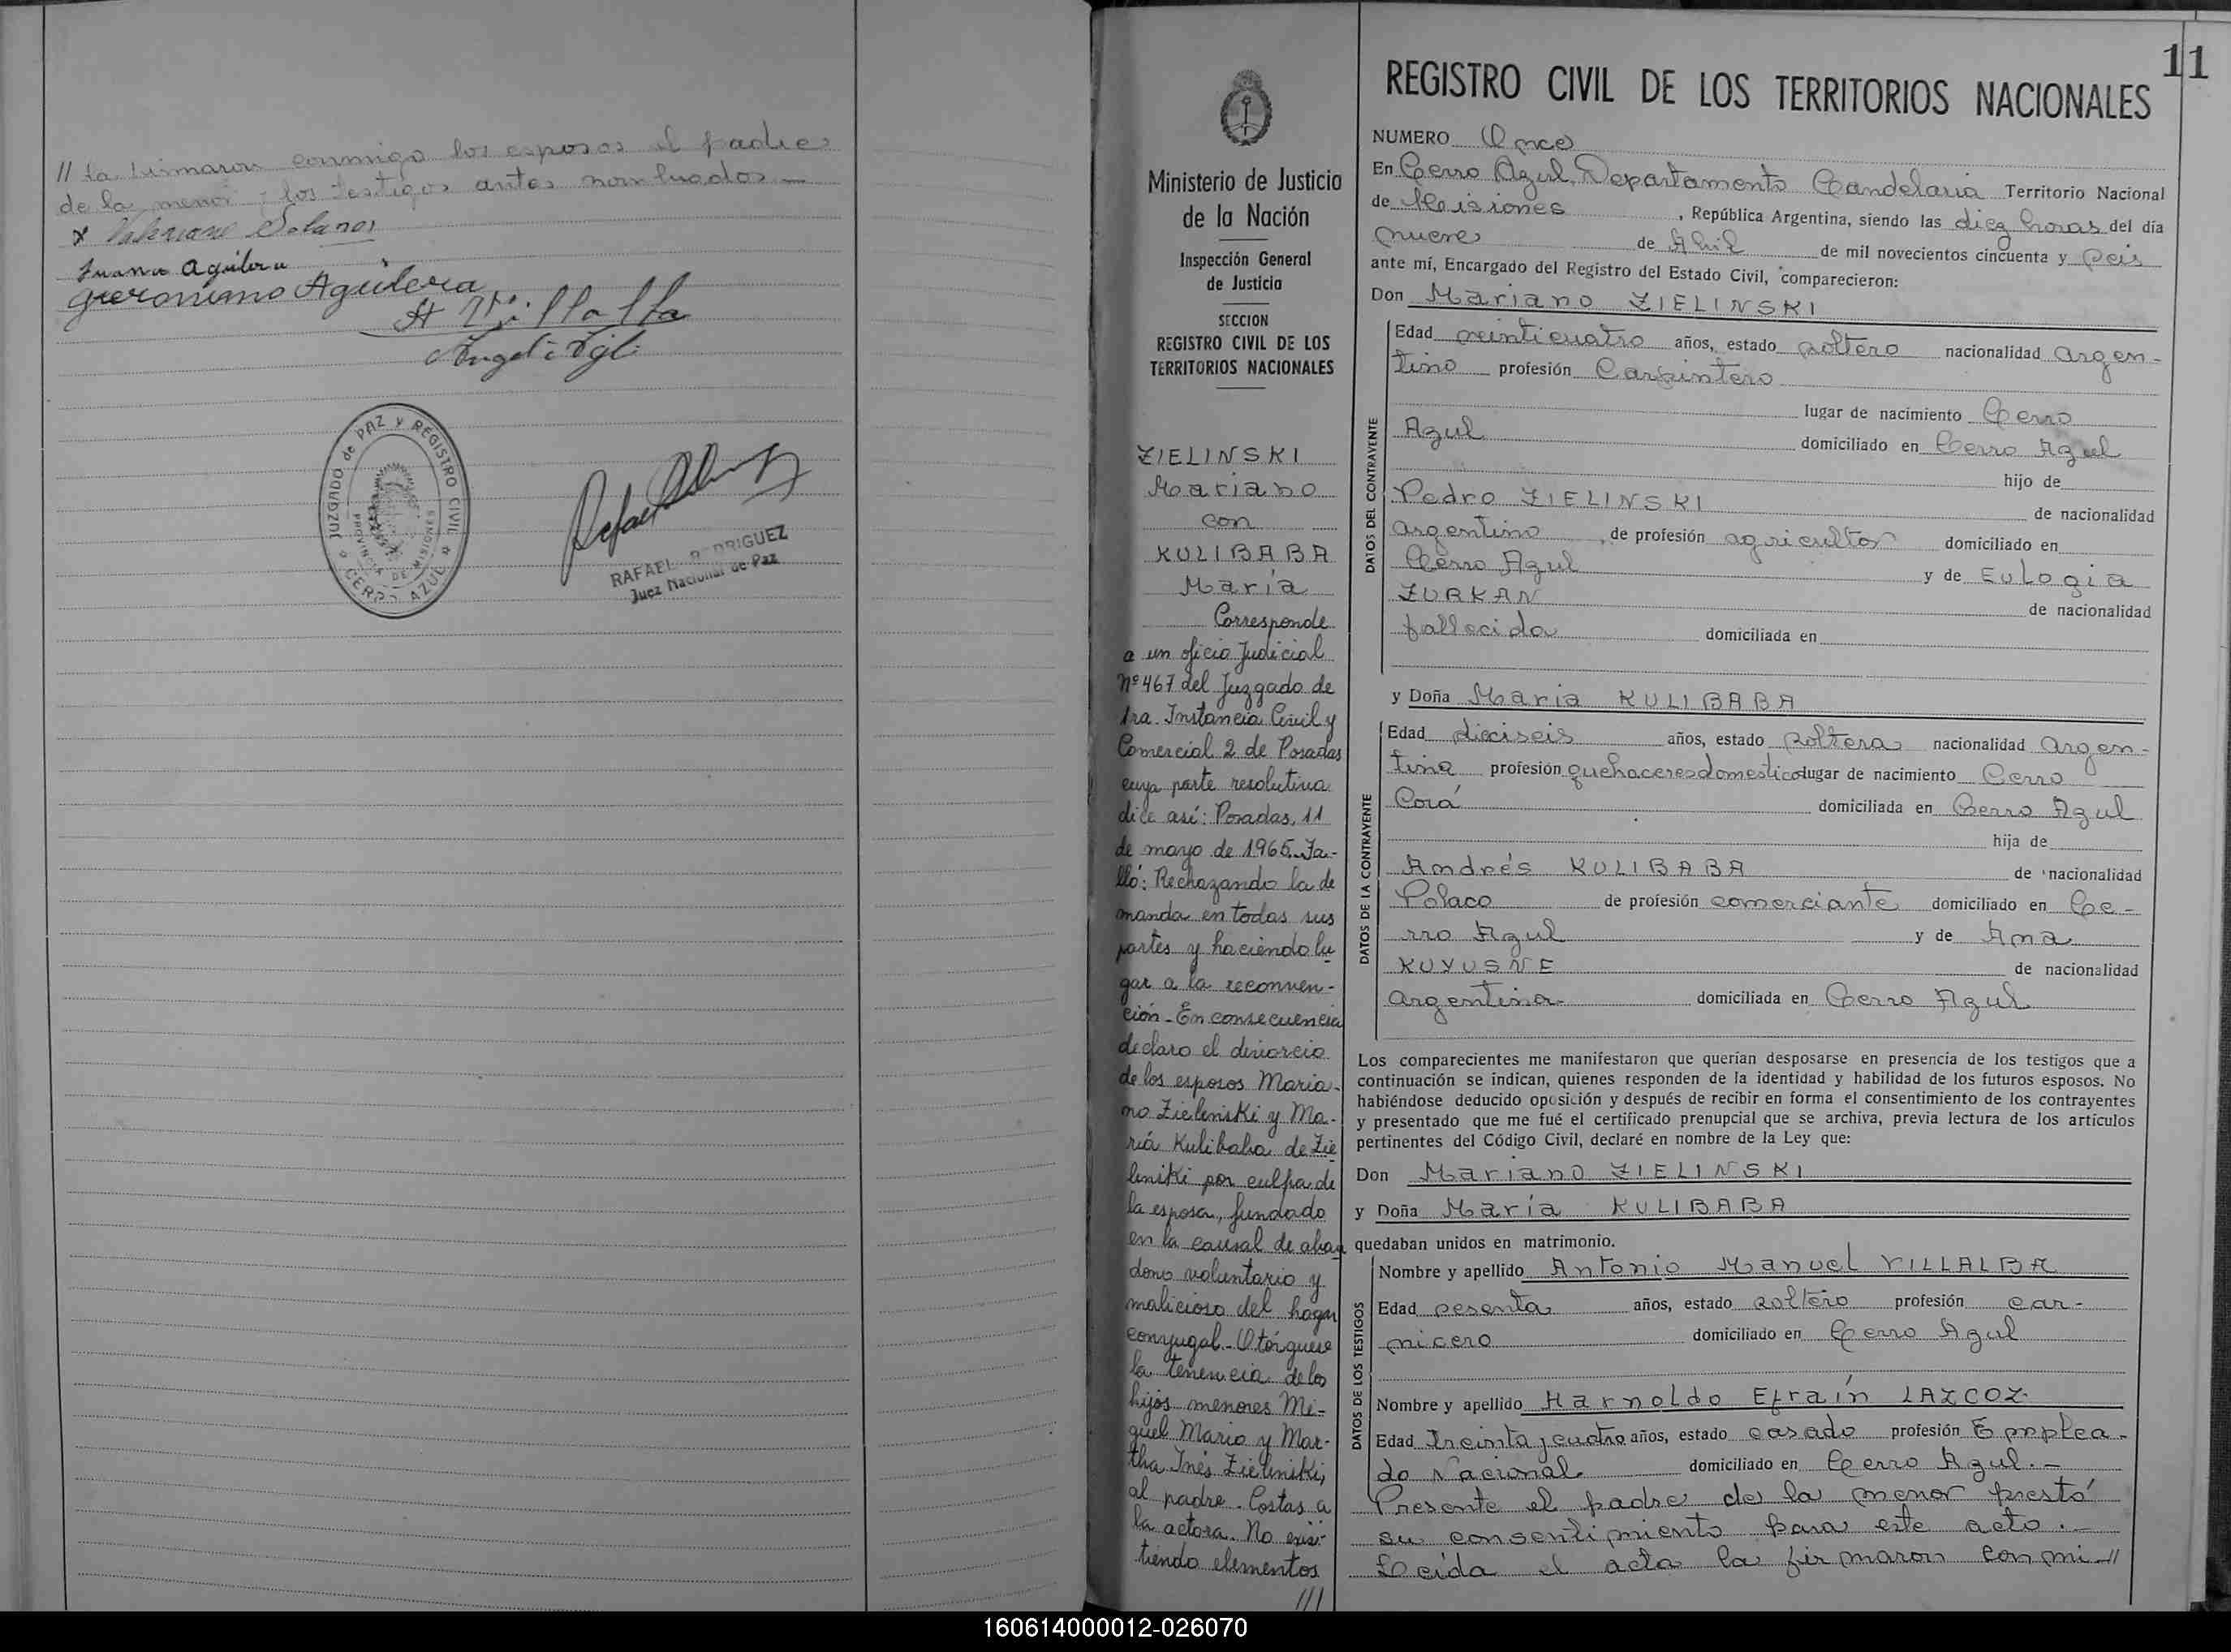 // ta firmaron conmigo los esposos el padre
de la menor y los testigos antes nombrados.—
x Valeriano Solanos
Juana Aguilera
Geronimo Aguilera
A Villalba
Angel
JUZGADO de PAZ y REGISTRO CIVIL
PROVINCIA DE MISIONES
CERRO AZUL
RAFAEL RODRIGUEZ
Juez Nacional de Paz
11
Ministerio de Justicia
de la Nación
Inspección General
de Justicia
SECCION
REGISTRO CIVIL DE LOS
TERRITORIOS NACIONALES
ZIELINSKI
Mariano
con
KULIBABA
María
Corresponde
a un oficio Judicial
Nº 467 del Juzgado de
1ra. Instancia Civil y
Comercial 2 de Posadas
cuya parte resolutiva
dice así: Posadas, 11
de mayo de 1965. Fa-
lló: Rechazando la de
manda en todas sus
partes y haciendo lu
gar a la reconven-
ción - En consecuencia
declaro el divorcio
de los esposos Maria-
no Zielinski y Ma-
ría Kulibaba de Zie
linski por culpa de
la esposa, fundado
en la causal de aban
dono voluntario y
malicioso del hogar
conyugal.- Otórguese
la tenencia de los
hijos menores Mi-
guel Mario y Mar-
tha Inés Zielinski,
al padre. Costas a
la actora. No exis-
tiendo elementos
///
REGISTRO CIVIL DE LOS TERRITORIOS NACIONALES
NUMERO Once
En Cerro Azul, Departamento Candelaria Territorio Nacional
de Misiones, República Argentina, siendo las diez horas del día
nueve de Abril de mil novecientos cincuenta y seis
ante mí, Encargado del Registro del Estado Civil, comparecieron:
Don Mariano ZIELINSKI
DATOS DEL CONTRAYENTE
Edad veinticuatro años, estado soltero nacionalidad argen-
tino profesión Carpintero
lugar de nacimiento Cerro
Azul domiciliado en Cerro Azul
hijo de
Pedro ZIELINSKI de nacionalidad
argentino, de profesión agricultor domiciliado en
Cerro Azul y de Eulogia
ZURKAN de nacionalidad
fallecida domiciliada en
y Doña María KULIBABA
DATOS DE LA CONTRAYENTE
Edad dieciseis años, estado soltera nacionalidad argen-
tina profesión quehaceres domestico lugar de nacimiento Cerro
Corá domiciliada en Cerro Azul
hija de
Andrés KULIBABA de nacionalidad
Polaco de profesión comerciante domiciliado en Ce-
rro Azul y de Ana
KUYUSNE de nacionalidad
argentina domiciliada en Cerro Azul
Los comparecientes me manifestaron que querían desposarse en presencia de los testigos que a
continuación se indican, quienes responden de la identidad y habilidad de los futuros esposos. No
habiéndose deducido oposición y después de recibir en forma el consentimiento de los contrayentes
y presentado que me fué el certificado prenupcial que se archiva, previa lectura de los artículos
pertinentes del Código Civil, declaré en nombre de la Ley que:
Don Mariano ZIELINSKI
y Doña María KULIBABA
quedaban unidos en matrimonio.
DATOS DE LOS TESTIGOS
Nombre y apellido Antonio Manuel VILLALBA
Edad sesenta años, estado soltero profesión car-
nicero domiciliado en Cerro Azul
Nombre y apellido Harnoldo Efraín LAZCOZ
Edad treinta y cuatro años, estado casado profesión Emplea-
do Nacional domiciliado en Cerro Azul.—
Presente el padre de la menor prestó
su consentimiento para este acto.—
Leída el acta la firmaron conmi-//
160614000012-026070